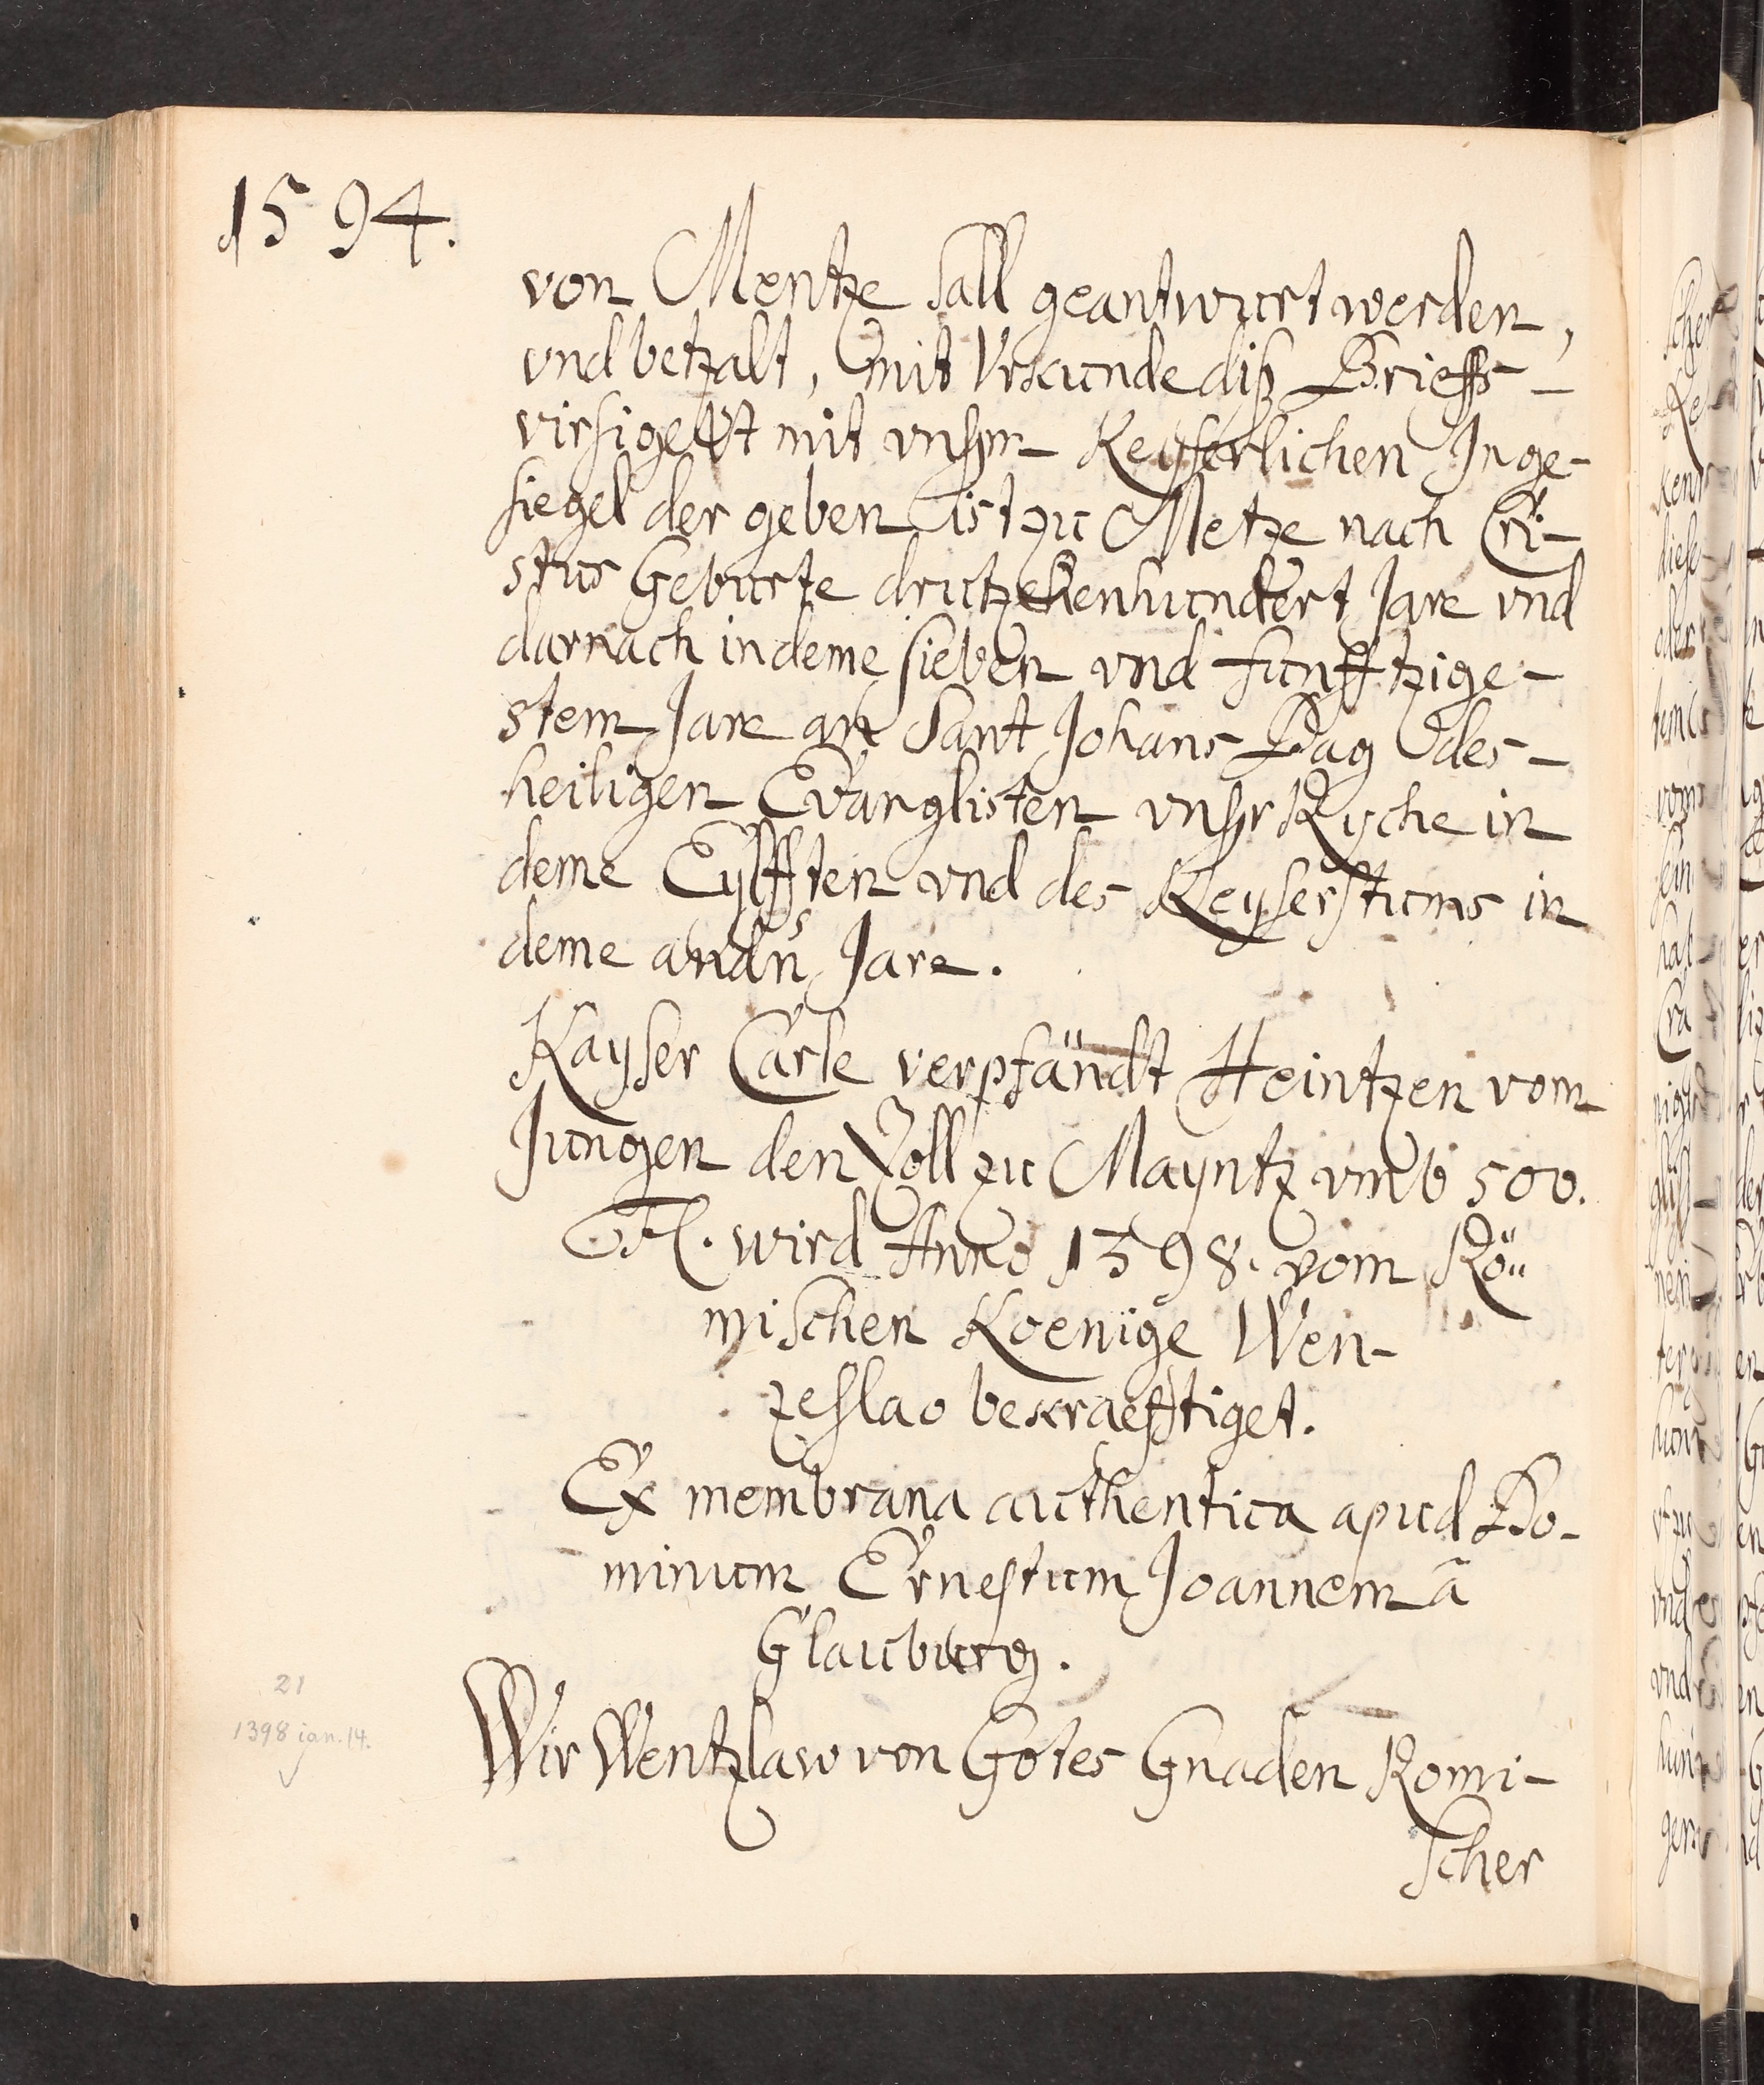 1594.
von Mentze sall geantwurt werden,
vnd betzalt, mit Vrkunde diß Brieffs
virsigelt mit vnßm Keyserlichen Inge-
siegel der geben ist zu Metze nach Cri-
stus Geburte drutzehenhundert Jare vnd
darnach in deme sieben vnd funfftzige-
stem Jare an Sant Johans Dag des
heiligen Evanglisten vnßr Ryche in
deme Eylfften vnd des Keyserstums in
deme andn Jare.
Kayser Carle verpfändt Heintzen vom
Jungen den Zoll zu Mayntz vmb 500.
Fl. wird Anno 1398. vom Rö-
mischen Koenige Wen-
zeslao bekraefftiget.
Ex membrana authentica apud Do-
minum Ernestum Joannem ã
Glauburg.
21
1398 jan. 14.
Wir Wentzlaw von Gotes Gnaden Romi-
scher